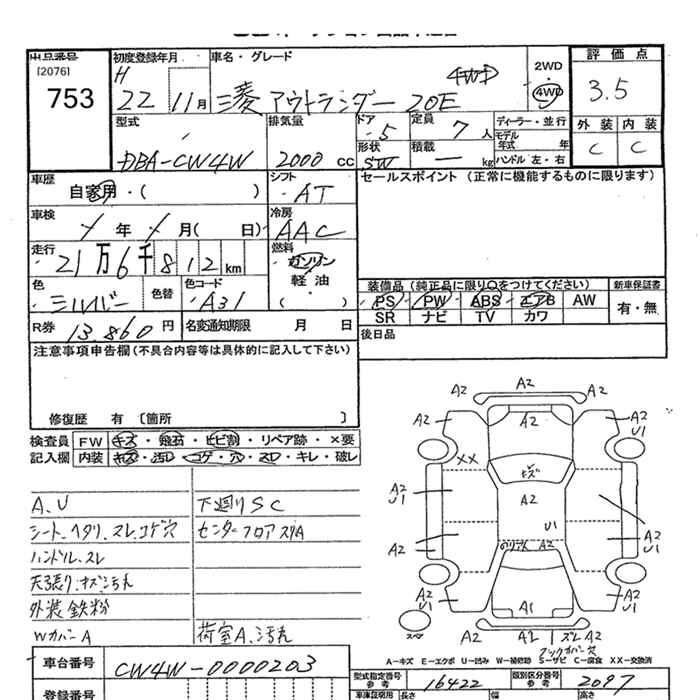 出品番号
[2076]
753
初度登録年月
H
22 11月
車名・グレード
三菱 アウトランダー 20E
4WD
2WD
・
4WD
評価点
3.5
外装 内装
C C
型式
DBA-CW4W
排気量
2000 cc
ドア
5
形状
SW
定員
7 人
積載
― kg
ディーラー・並行
モデル年式 年
ハンドル 左・右
車歴
自家用・( )
シフト
AT
セールスポイント (正常に機能するものに限ります)
車検
年 月( 日)
冷房
AAC
走行
21万6千812km
燃料
ガソリン
軽油
( )
色
シルバー
色替
色コード
A31
装備品 (純正品に限り○をつけてください)
新車保証書
PS PW ABS エアB AW
有・無
SR ナビ TV カワ
R券 13,860円
名変通知期限 月 日
後日品
注意事項申告欄(不具合内容等は具体的に記入して下さい)
修復歴 有 [箇所 ]
検査員
記入欄
FW キズ・飛石・ヒビ割・リペア跡・×要
内装 キズ・汚レ・コゲ・穴・スレ・キレ・破レ
A.U 下廻りSC
シート.ヘタリ.スレ.コゲ穴 センターフロアスリA
ハンドル.スレ
天張り.キズ汚れ
外装鉄粉
WカバーA 荷室A.汚れ
A2 A2 A2
A2 A2 A2
U1
XX キズ
A2 A2 A2
U1 U1
U1
A2 のりけん A2 A2
U1
A2 A1 A2
U1 U1
スペア
A2 A2 ズレA2
フックカバー欠
A-キズ E-エクボ U-凹み W-補修跡 S-サビ C-腐食 XX-交換済
車台番号 CW4W-0000203
型式指定番号
参考
16422
類別区分番号
参考
2097
登録番号
車庫証明用 長さ 幅 高さ